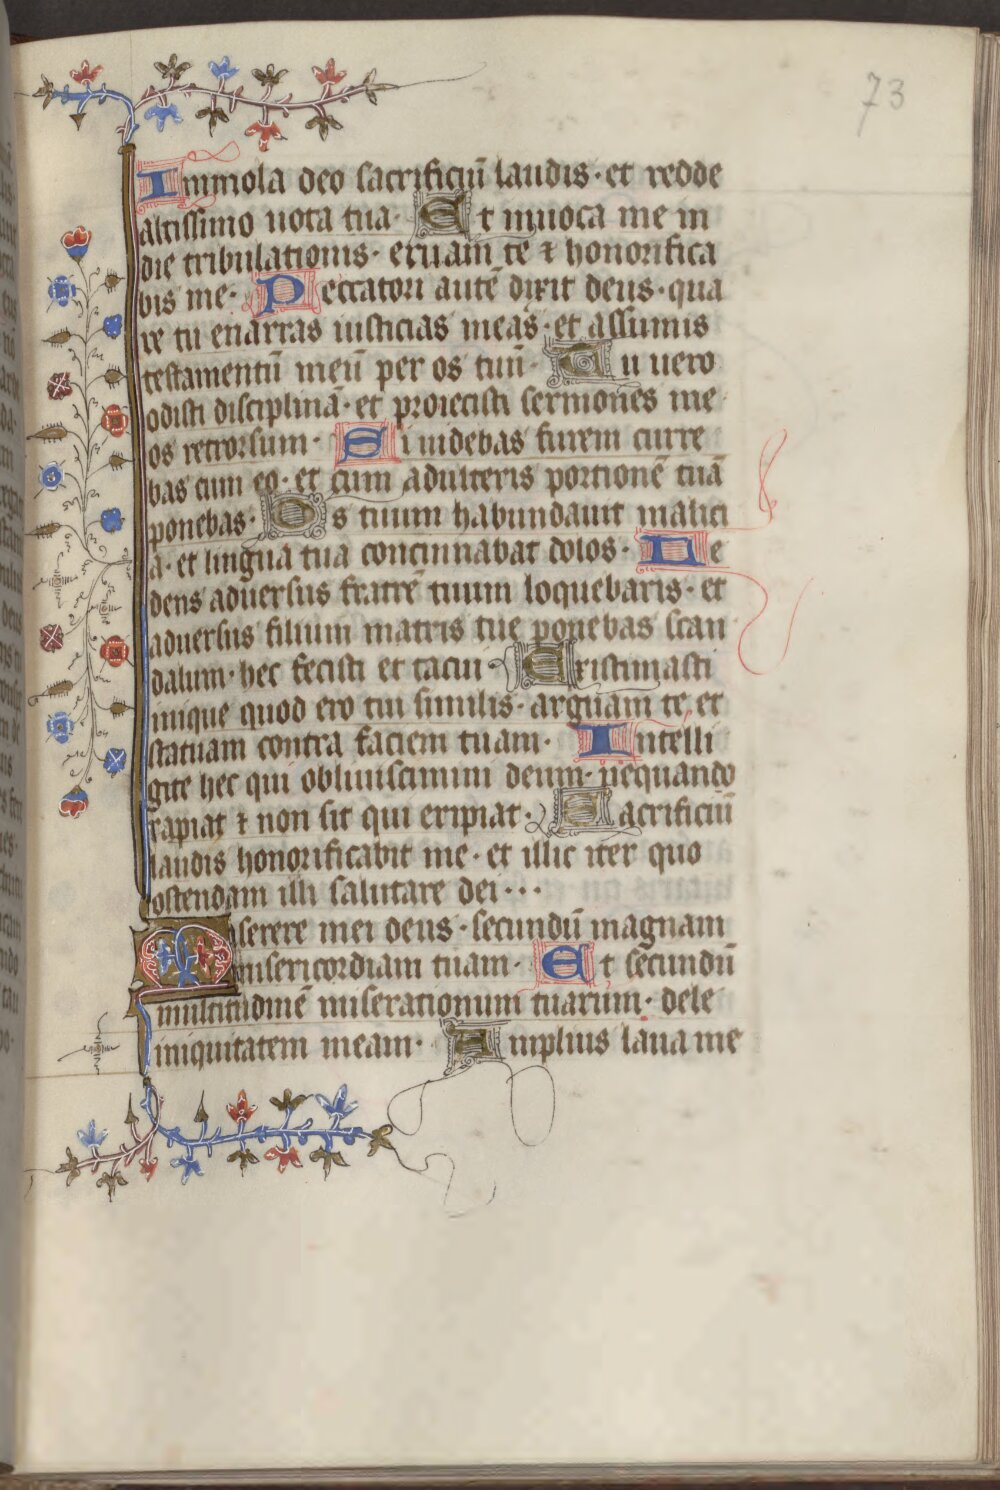 73
Immola deo sacrificiū laudis · et redde
altissimo uota tua · Et inuoca me in
die tribulationis · eruam te ⁊ honorifica
bis me · Peccatori autē dixit deus · qua
re tu enarras iusticias meas · et assumis
testamentū meū per os tuū · Tu uero
odisti disciplinā · et proiecisti sermones me
os retrorsum · Si uidebas furem curre
bas cum eo · et cum adulteris portionē tuā
ponebas · Os tuum habundauit malici
a · et lingua tua concinnabat dolos · Se
dens aduersus fratrē tuum loquebaris · et
aduersus filium matris tue ponebas scan
dalum · hec fecisti et tacui · Existimasti
inique quod ero tui similis · arguam te et
statuam contra faciem tuam · Intelli
gite hec qui obliuiscimini deum · nequando
rapiat ⁊ non sit qui eripiat · Sacrificiū
laudis honorificabit me · et illic iter quo
ostendam illi salutare dei · · ·
Miserere mei deus · secundū magnam
misericordiam tuam · Et secundū
multitudinē miserationum tuarum · dele
iniquitatem meam · Amplius laua me